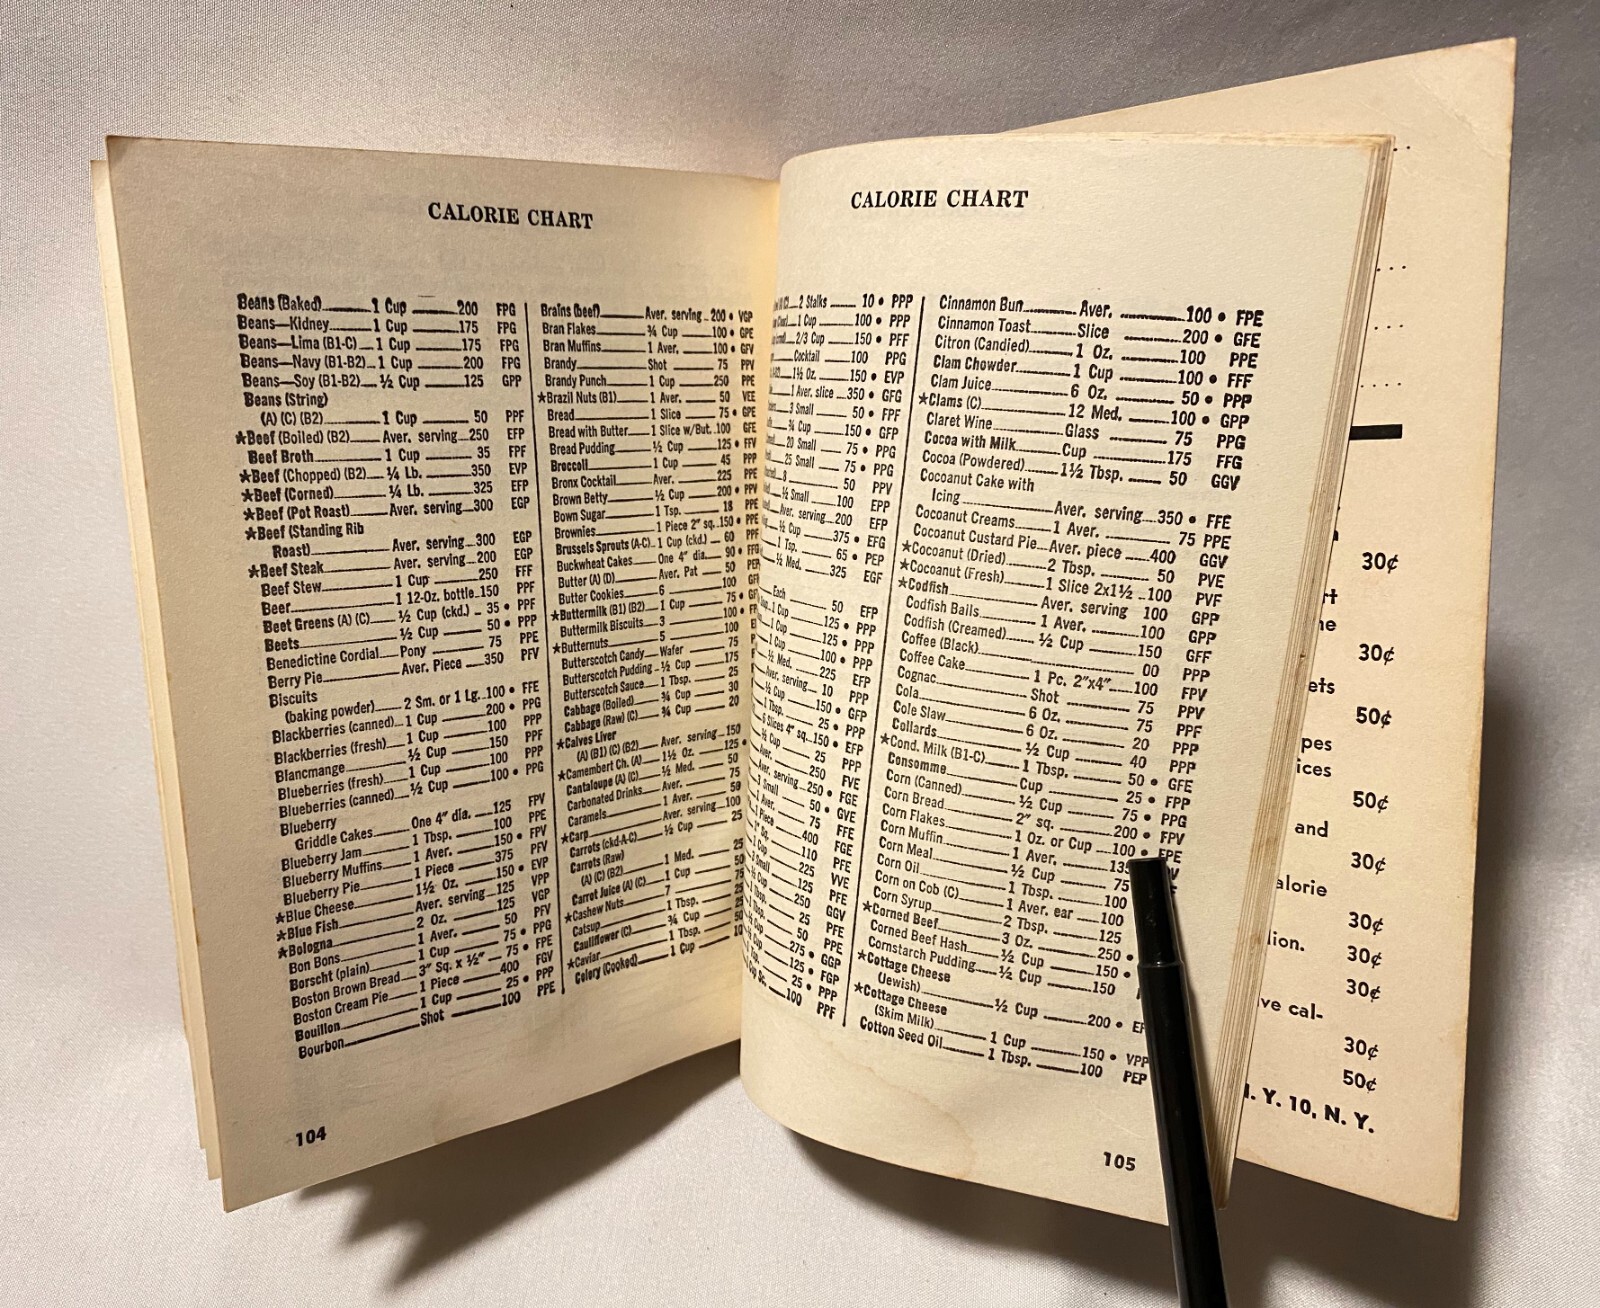 CALORIE CHART
Beans (Baked) 1 Cup 200 FPG
Beans—Kidney 1 Cup 175 FPG
Beans—Lima (B1-C) 1 Cup 175 FPG
Beans—Navy (B1-B2) 1 Cup 200 FPG
Beans—Soy (B1-B2) ½ Cup 125 GPP
Beans (String)
(A) (C) (B2) 1 Cup 50 PPF
★Beef (Boiled) (B2) Aver. serving 250 EFP
Beef Broth 1 Cup 35 FPF
★Beef (Chopped) (B2) ¼ Lb. 350 EVP
★Beef (Corned) ¼ Lb. 325 EFP
★Beef (Pot Roast) Aver. serving 300 EGP
★Beef (Standing Rib
Roast) Aver. serving 300 EGP
★Beef Steak Aver. serving 200 EGP
Beef Stew 1 Cup 250 FFF
Beer 1 12-Oz. bottle 150 PPF
Beet Greens (A) (C) ½ Cup (ckd.) 35 • PPF
Beets ½ Cup 50 • PPP
Benedictine Cordial Pony 75 PPE
Berry Pie Aver. Piece 350 PFV
Biscuits
(baking powder) 2 Sm. or 1 Lg. 100 • FFE
Blackberries (canned) 1 Cup 200 • PPG
Blackberries (fresh) 1 Cup 100 PPP
Blancmange ½ Cup 150 PFF
Blueberries (fresh) 1 Cup 100 PPP
Blueberries (canned) ½ Cup 100 • PPG
Blueberry
Griddle Cakes One 4″ dia. 125 FPV
Blueberry Jam 1 Tbsp. 100 PPE
Blueberry Muffins 1 Aver. 150 • FPV
Blueberry Pie 1 Piece 375 PFV
★Blue Cheese 1½ Oz. 150 • EVP
★Blue Fish Aver. serving 125 VPP
★Bologna 2 Oz. 125 VGP
Bon Bons 1 Aver. 50 PFV
Borscht (plain) 1 Cup 75 • PPG
Boston Brown Bread 3″ Sq. x ½″ 75 • FPE
Boston Cream Pie 1 Piece 400 FGV
Bouillon 1 Cup 25 • PPP
Bourbon Shot 100 PPE
Brains (beef) Aver. serving 200 • VGP
Bran Flakes ¾ Cup 100 • GPE
Bran Muffins 1 Aver. 100 • GFV
Brandy Shot 75 PPV
Brandy Punch 1 Cup 250 PPE
★Brazil Nuts (B1) 1 Aver. 50 VEE
Bread 1 Slice 75 • GPE
Bread with Butter 1 Slice w/But. 100 GFE
Bread Pudding ½ Cup 125 • FFV
Broccoli 1 Cup 45 PPP
Bronx Cocktail Aver. 225 PPE
Brown Betty ½ Cup 200 • PPV
Bown Sugar 1 Tsp. 18 PPE
Brownies 1 Piece 2″ sq. 150 • PPE
Brussels Sprouts (A-C) 1 Cup (ckd.) 60 PPF
Buckwheat Cakes One 4″ dia. 90 • FFG
Butter (A) (D) Aver. Pat 50 PEP
Butter Cookies 6 100
★Buttermilk (B1) (B2) 1 Cup 75 •
Buttermilk Biscuits 3 100 •
★Butternuts 5 100
Butterscotch Candy Wafer 75
Butterscotch Pudding ½ Cup 175
Butterscotch Sauce 1 Tbsp. 25
Cabbage (Boiled) ¾ Cup 30
Cabbage (Raw) (C) ¾ Cup 20
★Calves Liver
(A) (B1) (C) (B2) Aver. serving 150
★Camembert Ch. (A) 1½ Oz. 125 •
Cantaloupe (A) (C) ½ Med. 50
Carbonated Drinks Aver. 75
Caramels 1 Aver. 50
★Carp Aver. serving 100
Carrots (ckd-A-C) ½ Cup 25
Carrots (Raw)
(A) (C) (B2) 1 Med. 25
Carrot Juice (A) (C) 1 Cup 50
★Cashew Nuts 7 75
Catsup 1 Tbsp. 25
Cauliflower (C) ¾ Cup
★Caviar 1 Tbsp. 50
Celery (Cooked) 1 Cup 10
104
CALORIE CHART
2 Stalks 10 • PPP
1 Cup 100 • PPP
2/3 Cup 150 • PFF
Cocktail 100 PPG
1½ Oz. 150 • EVP
1 Aver. slice 350 • GFG
3 Small 50 • FPF
¾ Cup 150 • GFP
20 Small 75 • PPG
25 Small 75 • PPG
8 50 PPV
½ Small 100 EPP
Aver. serving 200 EFP
½ Cup 375 • EFG
1 Tsp. 65 • PEP
½ Med. 325 EGF
Each 50 EFP
1 Cup 125 • PPP
1 Cup 125 • PPP
1 Cup 100 • PPP
½ Med. 225 EFP
Aver. serving 10 PPP
½ Cup 150 • GFP
1 Tbsp. 25 • PPP
6 Slices 4″ sq. 150 • EFP
Cup 25 PPP
Aver. 250 FVE
Aver. serving 250 • FGE
1 Small 50 • GVE
1 Aver. 75 FFE
1 Piece 400 FGE
Sq. 110 PFE
Cup 225 VVE
3 Small 125 PFE
1 Tbsp. 250 GGV
Cup 25 PFE
Tbsp. 50 PPE
Cup 275 • GGP
125 • FGP
25 • PPP
100 PPF
Cinnamon Bun Aver. 100 • FPE
Cinnamon Toast Slice 200 • GFE
Citron (Candied) 1 Oz. 100 PPE
Clam Chowder 1 Cup 100 • FFF
Clam Juice 6 Oz. 50 • PPP
★Clams (C) 12 Med. 100 • GPP
Claret Wine Glass 75 PPG
Cocoa with Milk Cup 175 FFG
Cocoa (Powdered) 1½ Tbsp. 50 GGV
Cocoanut Cake with
Icing Aver. serving 350 • FFE
Cocoanut Creams 1 Aver. 75 PPE
Cocoanut Custard Pie Aver. piece 400 GGV
★Cocoanut (Dried) 2 Tbsp. 50 PVE
★Cocoanut (Fresh) 1 Slice 2x1½ 100 PVF
★Codfish Aver. serving 100 GPP
Codfish Balls 1 Aver. 100 GPP
Codfish (Creamed) ½ Cup 150 GFF
Coffee (Black) 00 PPP
Coffee Cake 1 Pc. 2″x4″ 100 FPV
Cognac Shot 75 PPV
Cola 6 Oz. 75 PPF
Cole Slaw 6 Oz. 20 PPP
Collards ½ Cup 40 PPP
★Cond. Milk (B1-C) 1 Tbsp. 50 • GFE
Consomme Cup 25 • FPP
Corn (Canned) ½ Cup 75 • PPG
Corn Bread 2″ sq. 200 • FPV
Corn Flakes 1 Oz. or Cup 100 • FPE
Corn Muffin 1 Aver. 135
Corn Meal ½ Cup 75
Corn Oil 1 Tbsp. 100
Corn on Cob (C) 1 Aver. ear 100
Corn Syrup 2 Tbsp. 125
★Corned Beef 3 Oz. 250 •
Corned Beef Hash ½ Cup 150 •
Cornstarch Pudding ½ Cup 150
★Cottage Cheese
(Jewish) ½ Cup 200 •
★Cottage Cheese
(Skim Milk) 1 Cup 150 • VPP
Cotton Seed Oil 1 Tbsp. 100 PEP
105
30¢
30¢
ets
50¢
pes
ices
50¢
and
30¢
alorie
30¢
lion.
30¢
30¢
ve cal-
30¢
50¢
Y. 10, N. Y.